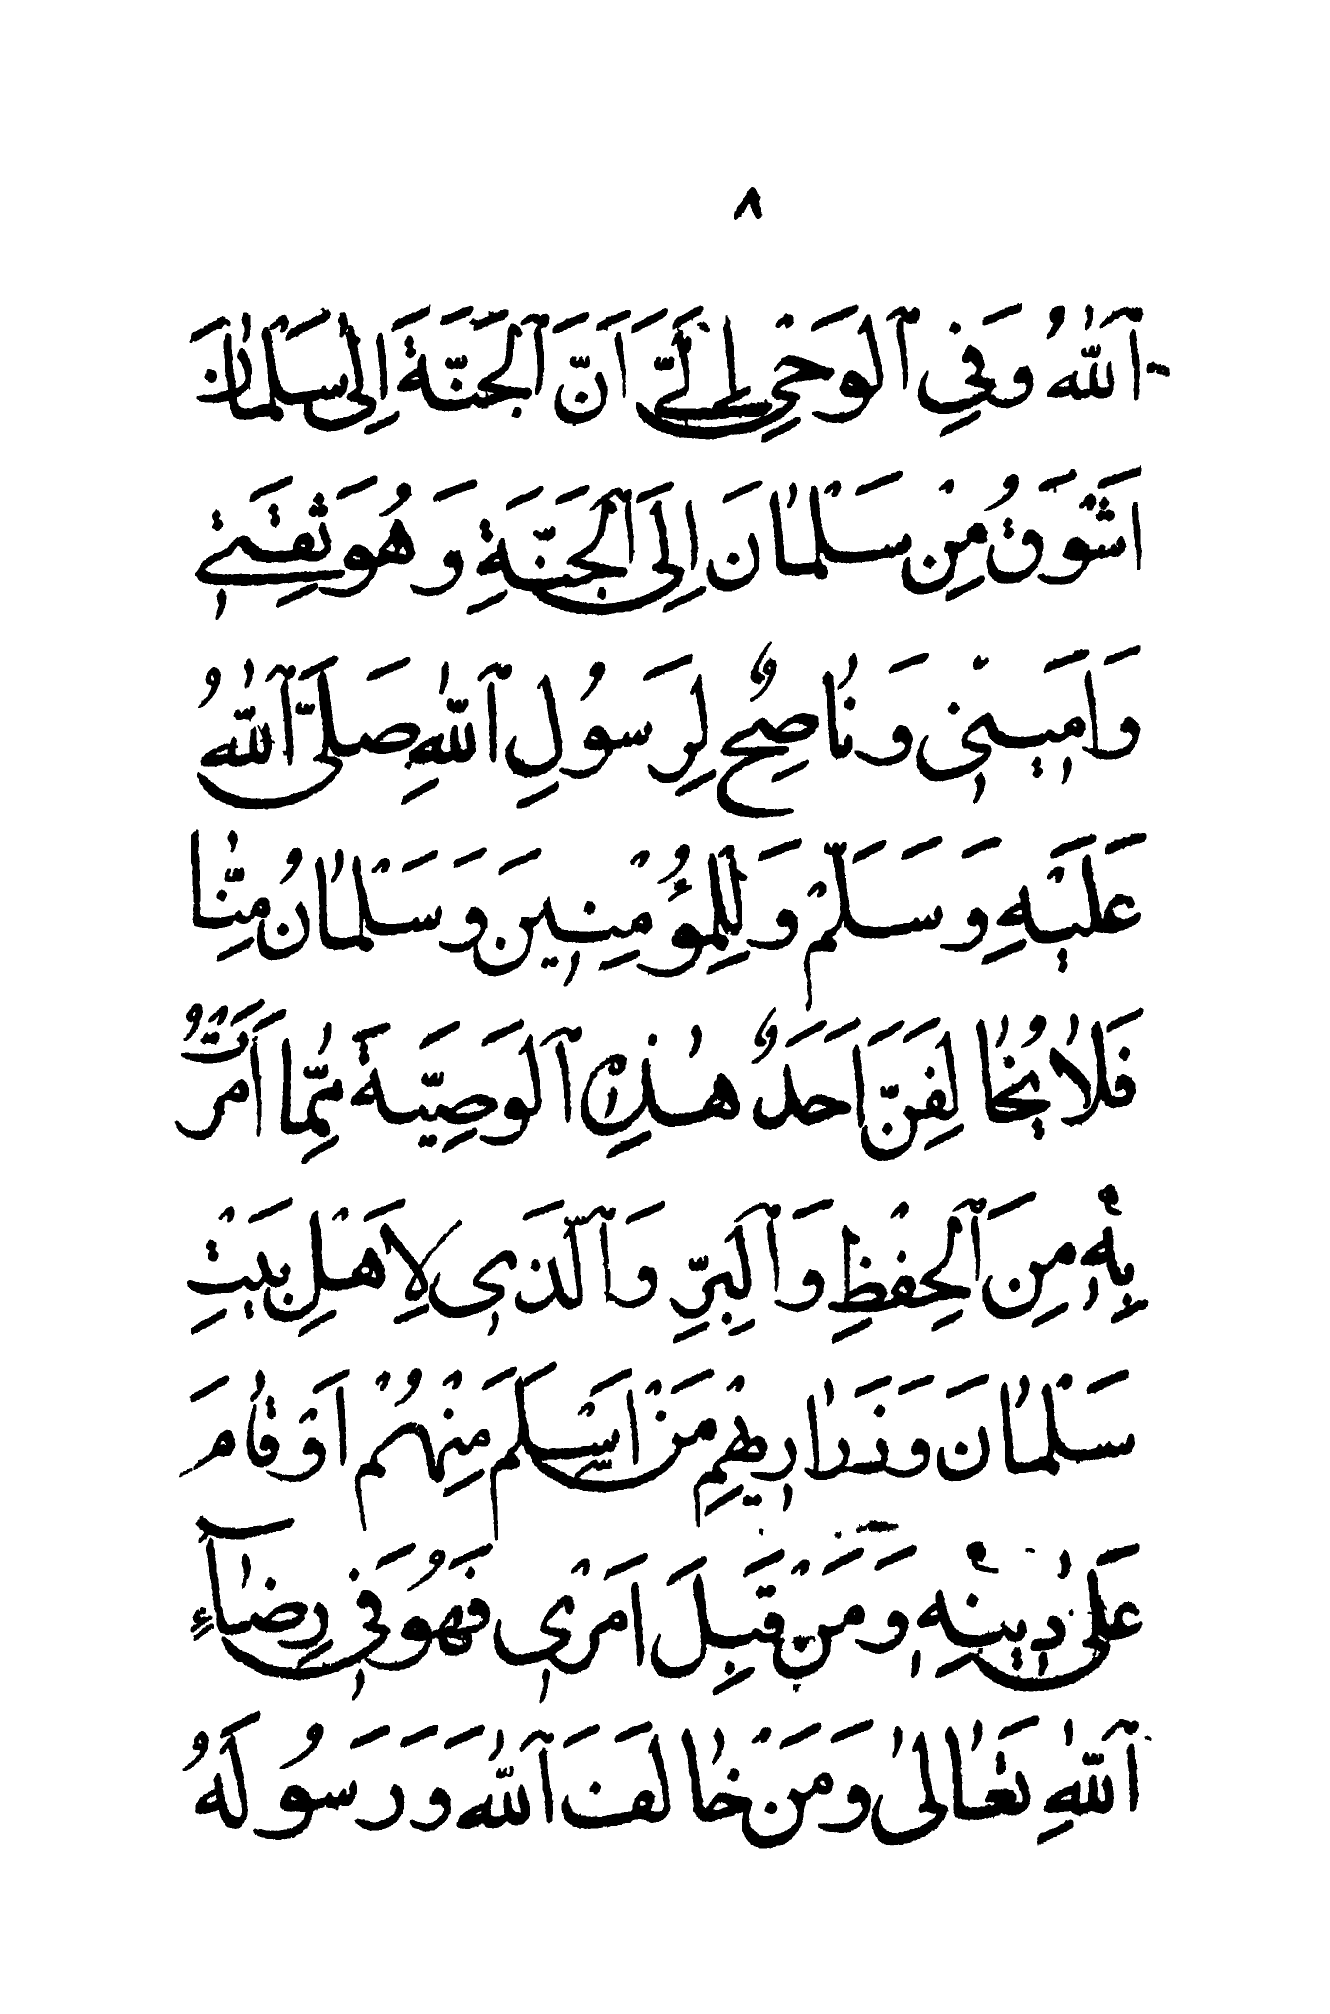 ٨
اَللّٰهُ وَفِي اَلْوَحْيِ اِلَيَّ اَنَّ اَلْجَنَّةَ اِلٰى سَلْمَانَ
اَشْوَقُ مِنْ سَلْمَانَ اِلَى اَلْجَنَّةِ وَهُوَ ثِقَتِي
وَاَمِينِي وَنَاصِحٌ لِرَسُولِ اَللّٰهِ صَلَّى اَللّٰهُ
عَلَيْهِ وَسَلَّمْ وَلِلْمُؤْمِنِينَ وَسَلْمَانُ مِنَّا
فَلَا يُخَالِفَنَّ اَحَدٌ هٰذِهِ اَلْوَصِيَّةَ مِمَّا اَمَرْتُ
بِهِ مِنَ اَلْحِفْظِ وَاَلْبِرِّ وَاَلَّذِي لِاَهْلِ بَيْتِ
سَلْمَانَ وَذَرَارِيهِمْ مَنْ اَسْلَمَ مِنْهُمْ اَوْ قَامَ
عَلَى دِينِهِ وَمَنْ قَبِلَ اَمْرِي فَهُوَ فِي رِضَاءِ
اَللّٰهِ تَعَالٰى وَمَنْ خَالَفَ اَللّٰهَ وَرَسُولَهُ